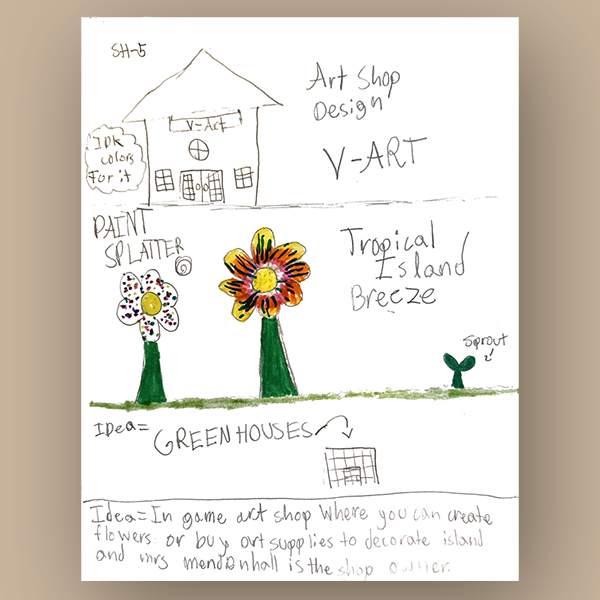 SH-5
Art Shop
Design
V-Art
V-ART
IDK
colors
For it
PAINT
SPLATTER
Tropical
Island
Breeze
Sprout
IDea=
GREENHOUSES
Idea= In game art shop where you can create
flowers or buy art supplies to decorate island
and mrs mendenhall is the shop owner.